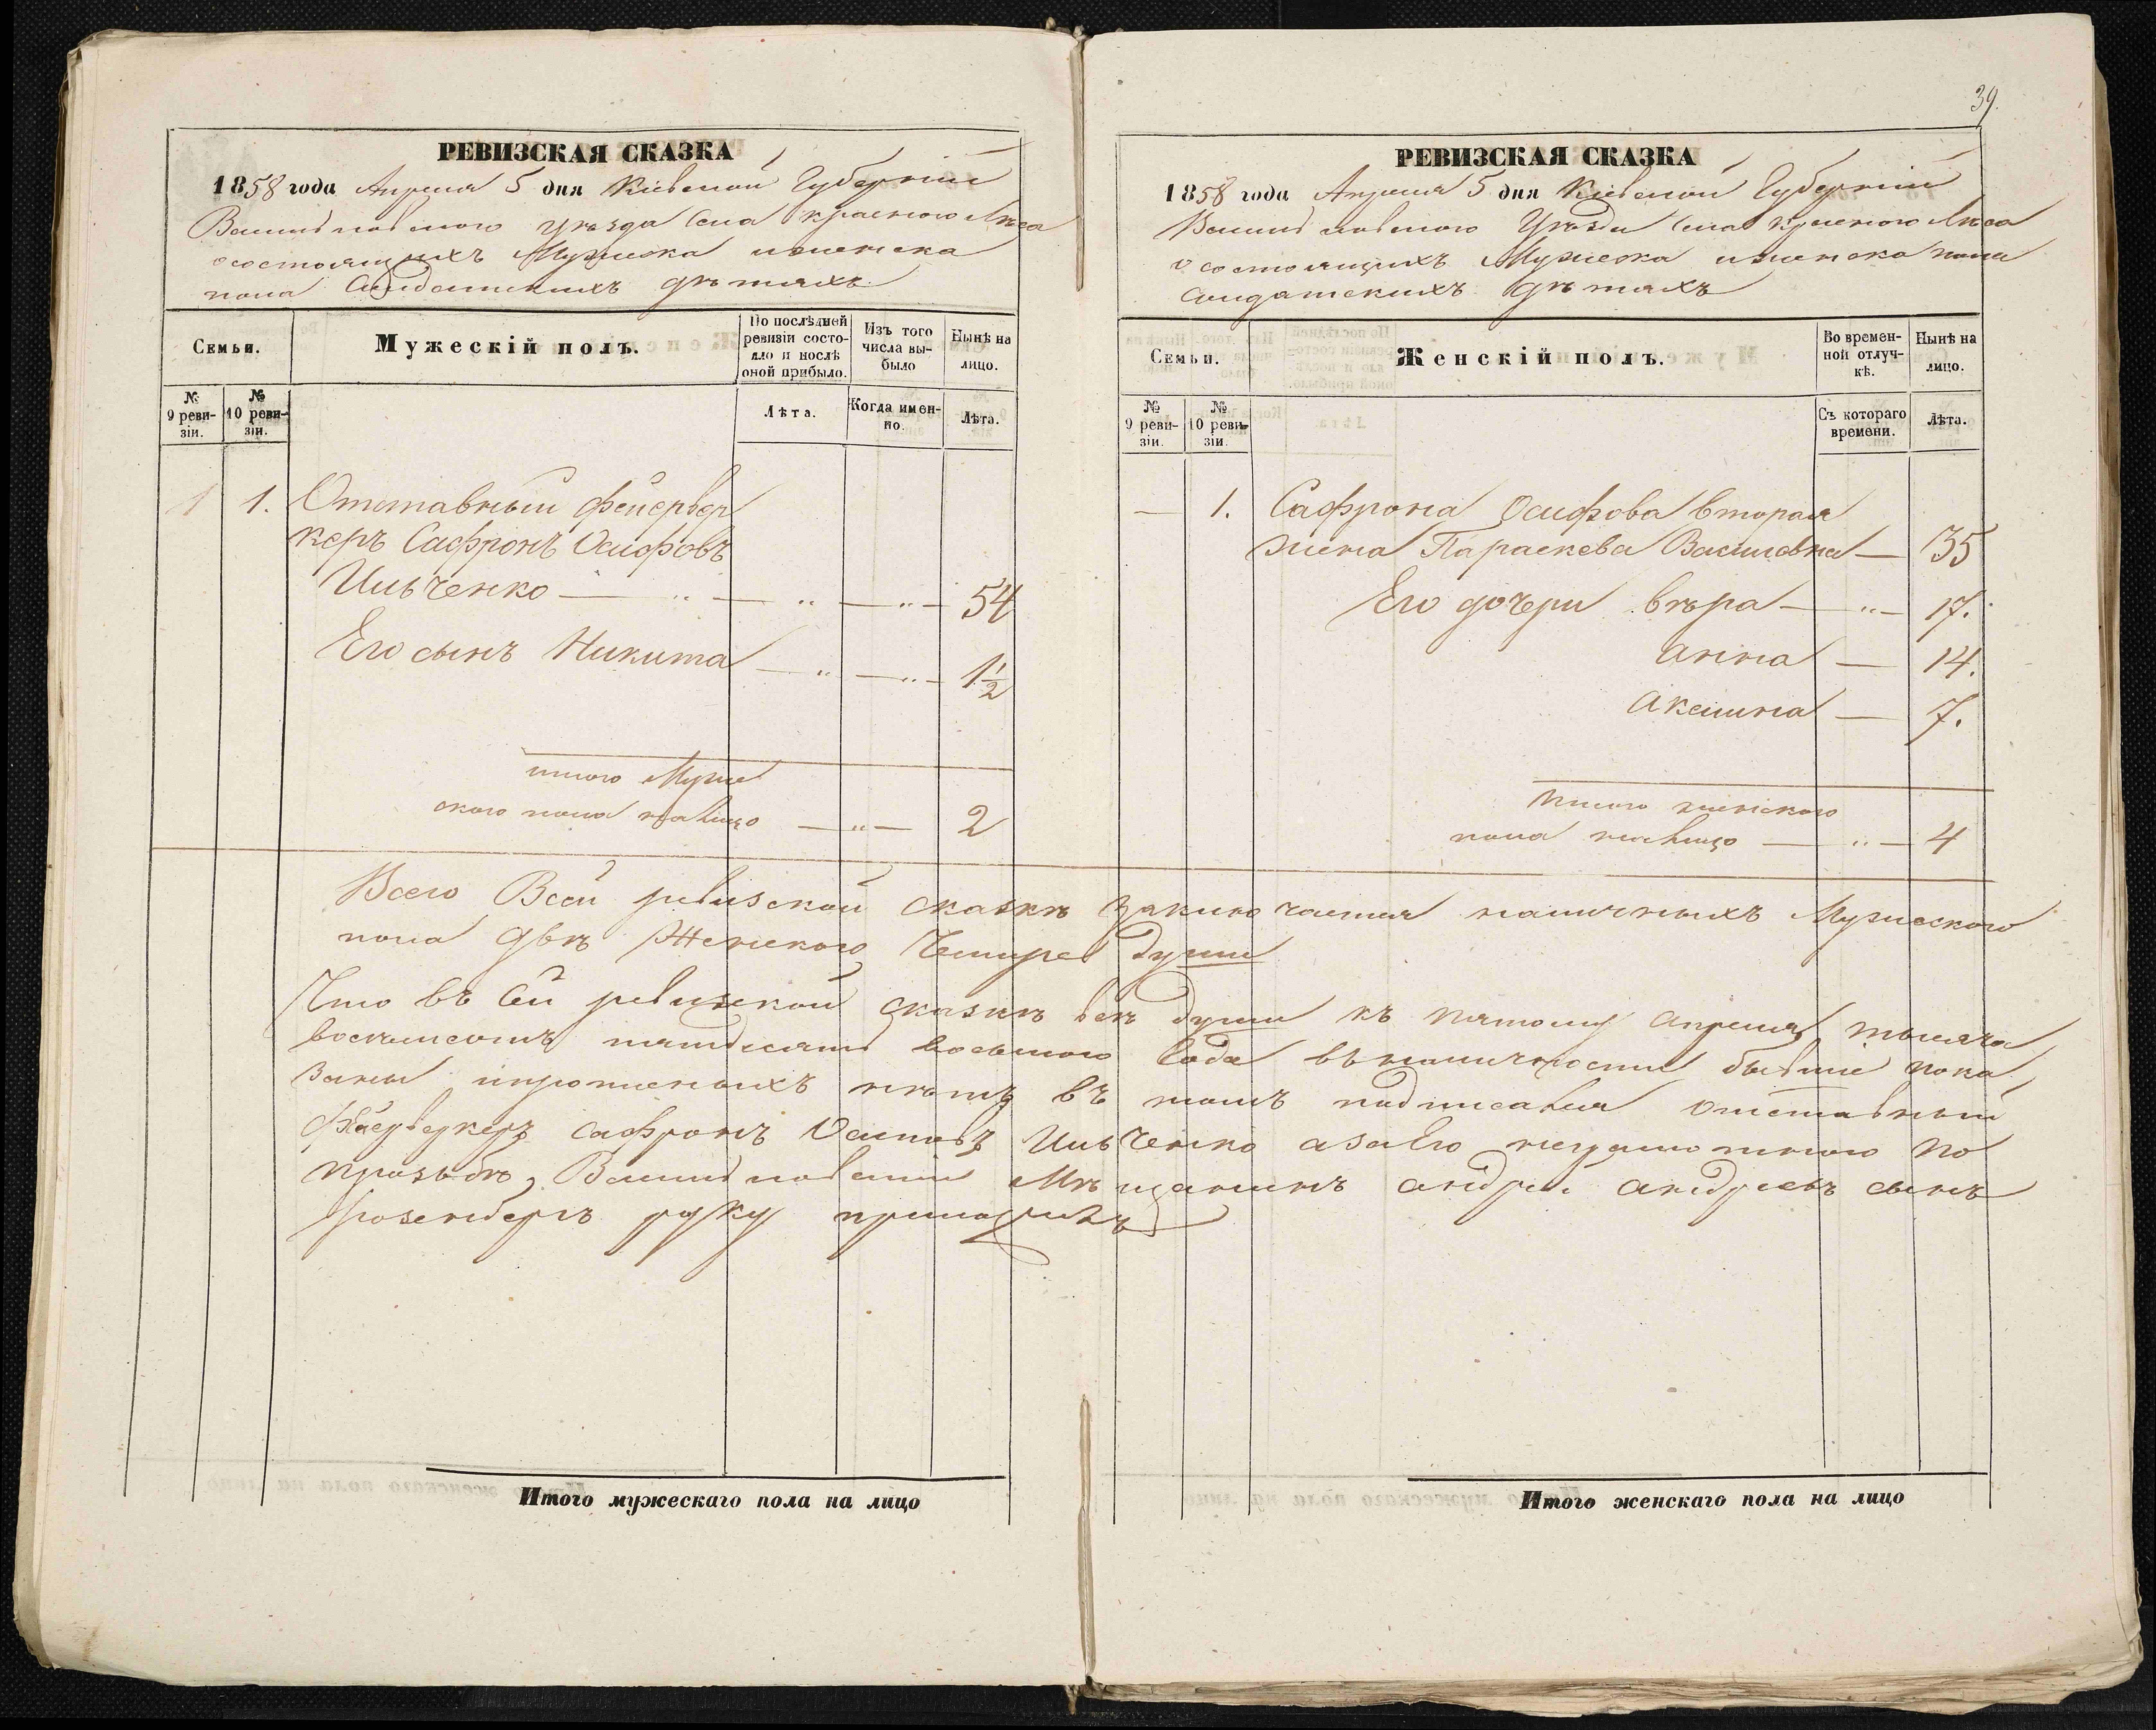 РЕВИЗСКАЯ СКАЗКА
1858 года Апреля 5 дня Кіевской Губерніи
Васильковского Уѣзда Села Красного Лѣса
осостоящихъ Мужеска иженска
пола Солдатскихъ дѣтяхъ
Семьи.
Мужескій полъ.
По послѣдней ревизіи состояло и послѣ оной прибыло.
Изъ того числа выбыло
Нынѣ на лицо.
№ 9 ревизіи.
№ 10 ревизіи.
Лѣта.
Когда именно.
Лѣта.
1 1. Отставный фейервер
керъ Сафронъ Осифовъ
Ильченко — „ — „ — „ — 54
Его сынъ Никита — „ — „ — 1½
итого Муже
ского пола налицо — „ — 2
39.
РЕВИЗСКАЯ СКАЗКА
1858 года Апреля 5 дня Кіевской Губерніи
Васильковского Уѣзда Села Красного Лѣса
о состоящихъ Мужеска иженска пола
Солдатскихъ дѣтяхъ
Семьи.
Женскій полъ.
Во временной отлучкѣ.
Нынѣ на лицо.
№ 9 ревизіи.
№ 10 ревизіи.
Съ котораго времени.
Лѣта.
— 1. Сафрона Осифова вторая
жена Параскева Василовна — 35
Его дочери вѣра — „ — 17.
анна — 14.
аксинна — 7.
итого женского
пола налицо — „ — 4
Всего Всей ревизской сказкѣ заключается наличныхъ Мужеского
пола двѣ Женского Четыре души
Что въ Сей ревизской сказкѣ всѣ души къ пятому апреля тысяча
восемьсотъ пятдесятъ восьмого Года вналичности бывшие пока
заны ипрописныхъ нѣтъ въ томъ подписался отставный
сафронъ Осиповъ Ильченко азаЕго неграмотного по
прозьбѣ, Васильковский Мѣщанинъ андрей андреевъ сынъ
розенбергъ руку приложилъ
Итого мужескаго пола на лицо
Итого женскаго пола на лицо